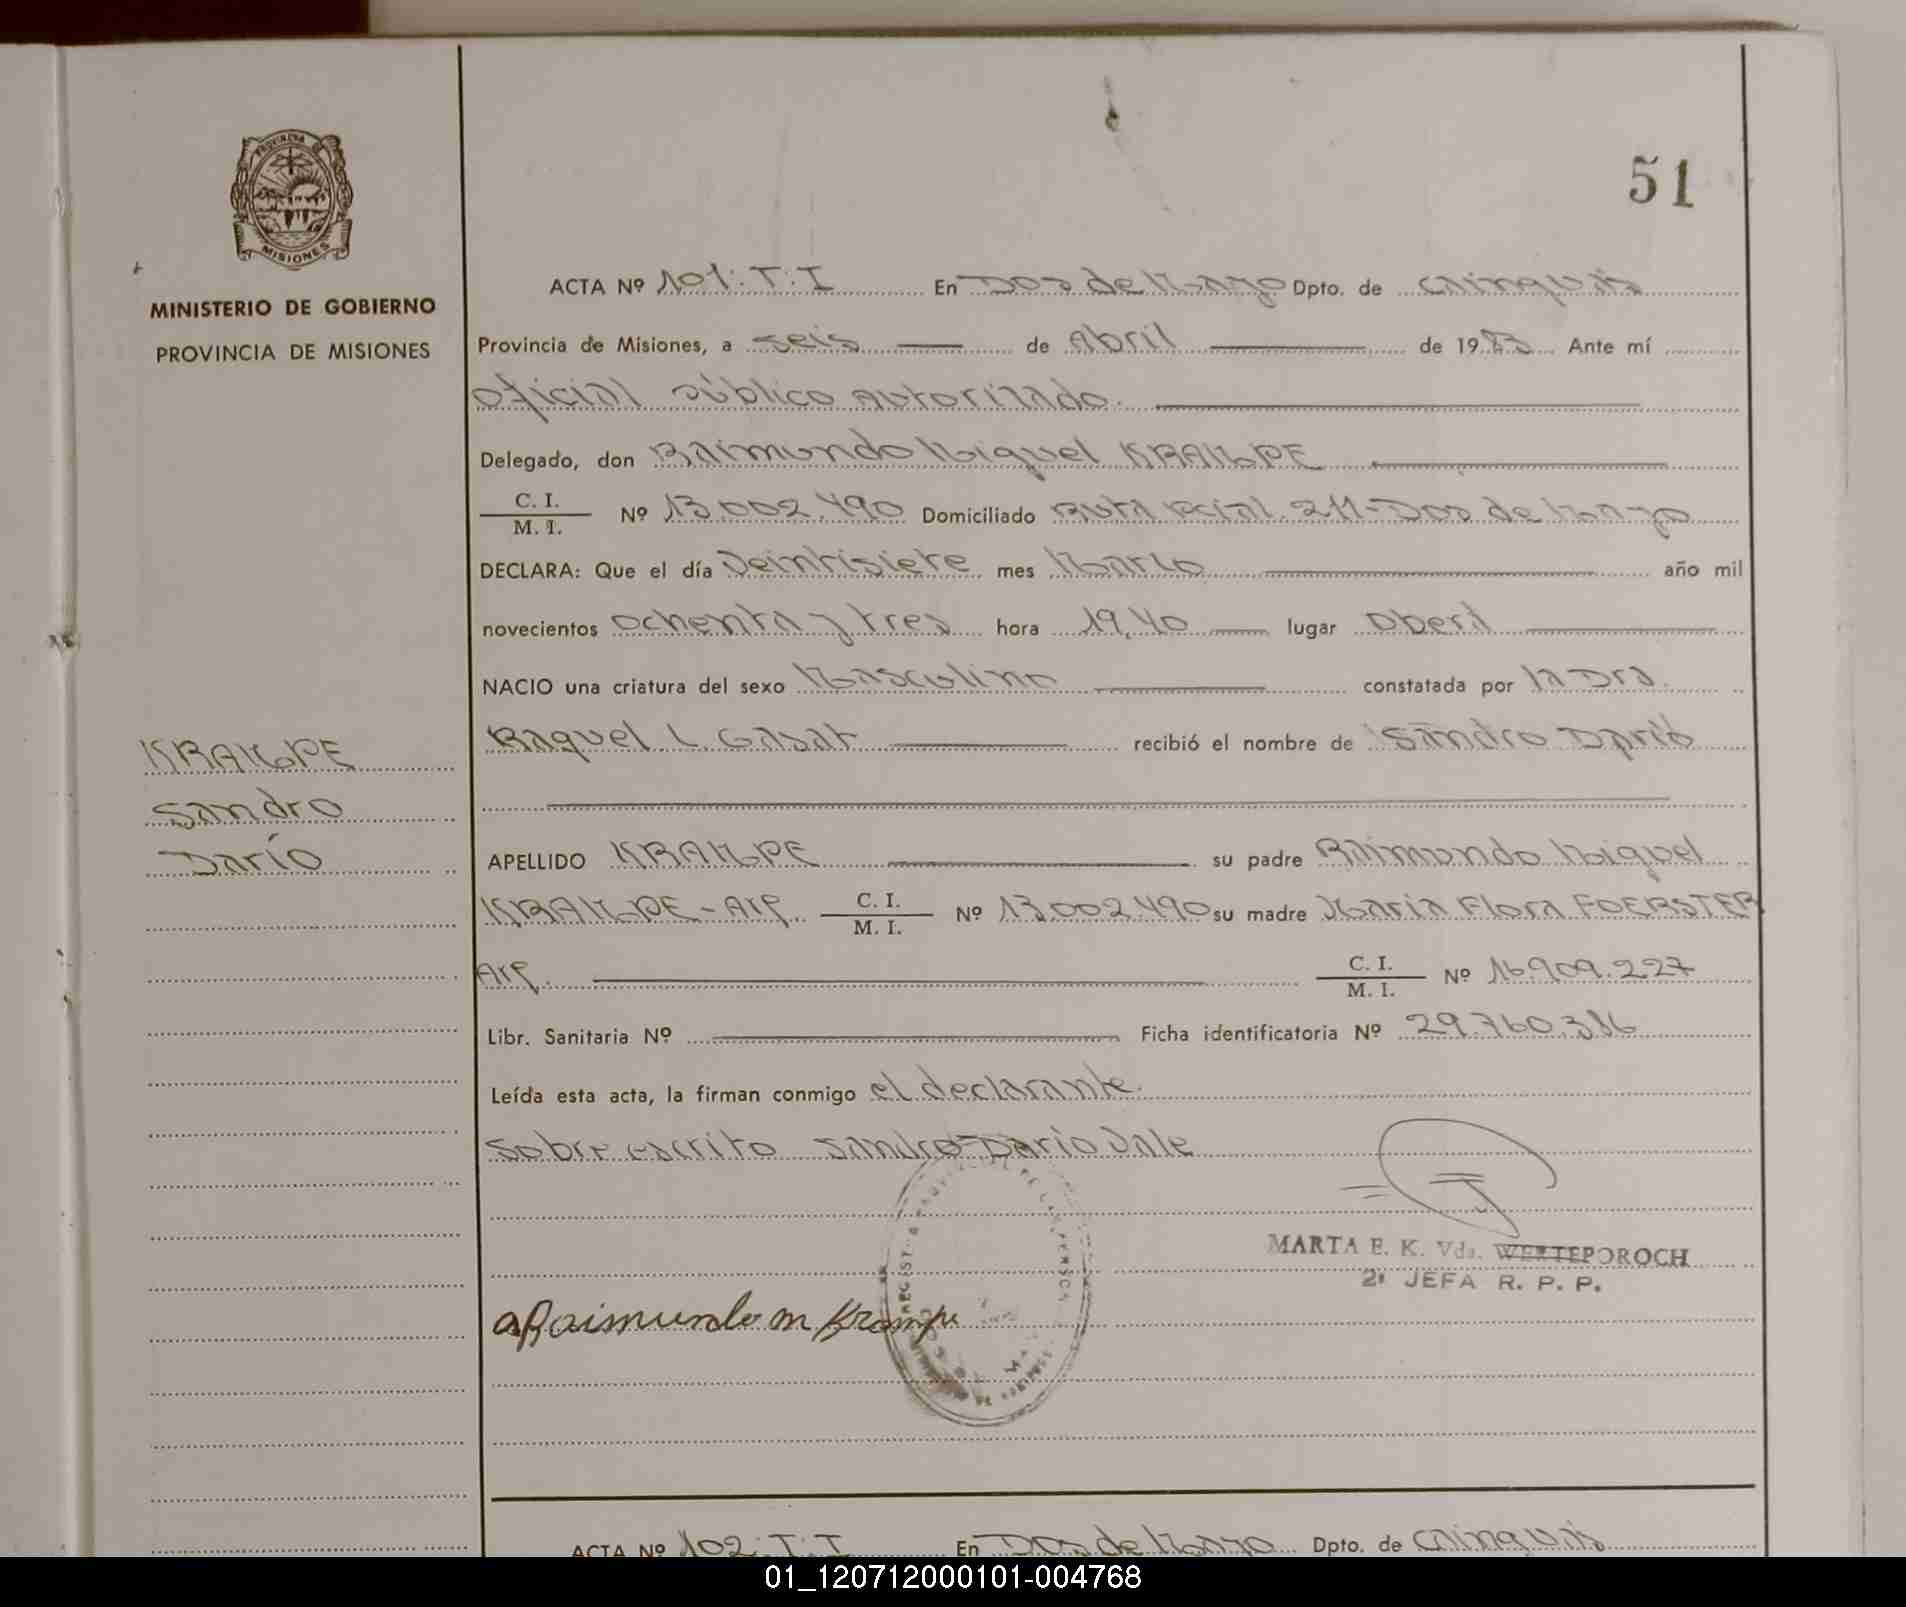 PROVINCIA
MISIONES
MINISTERIO DE GOBIERNO
PROVINCIA DE MISIONES
KRAMPE
Sandro
Darío
51
ACTA Nº 101: T: I En Dos de Mayo Dpto. de Cainguás
Provincia de Misiones, a seis de Abril de 1983 Ante mí
Oficial público autorizado.
Delegado, don Raimundo Miguel KRAMPE
C. I.
M. I. Nº 13.002.490 Domiciliado Ruta pcial. 211-Dos de Mayo
DECLARA: Que el día Veintisiete mes Marzo año mil
novecientos Ochenta y tres hora 19,40 lugar Oberá
NACIO una criatura del sexo Masculino constatada por la Dra.
Raquel L. recibió el nombre de Sandro Darío
APELLIDO KRAMPE su padre Raimundo Miguel
KRAMPE-Arg. C. I.
M. I. Nº 13.002.490 su madre María Flora FOERSTER
Arg. C. I.
M. I. Nº 16.909.227
Libr. Sanitaria Nº Ficha identificatoria Nº 29.760.386
Leída esta acta, la firman conmigo el declarante.
Sobre escrito Sandro Darío Vale
MARTA E. K. Vda. WERTEPOROCH
2ª JEFA R. P. P.
Raimundo M Krampe
ACTA Nº 102: T: I En Dos de Mayo Dpto. de Cainguás
01_120712000101-004768